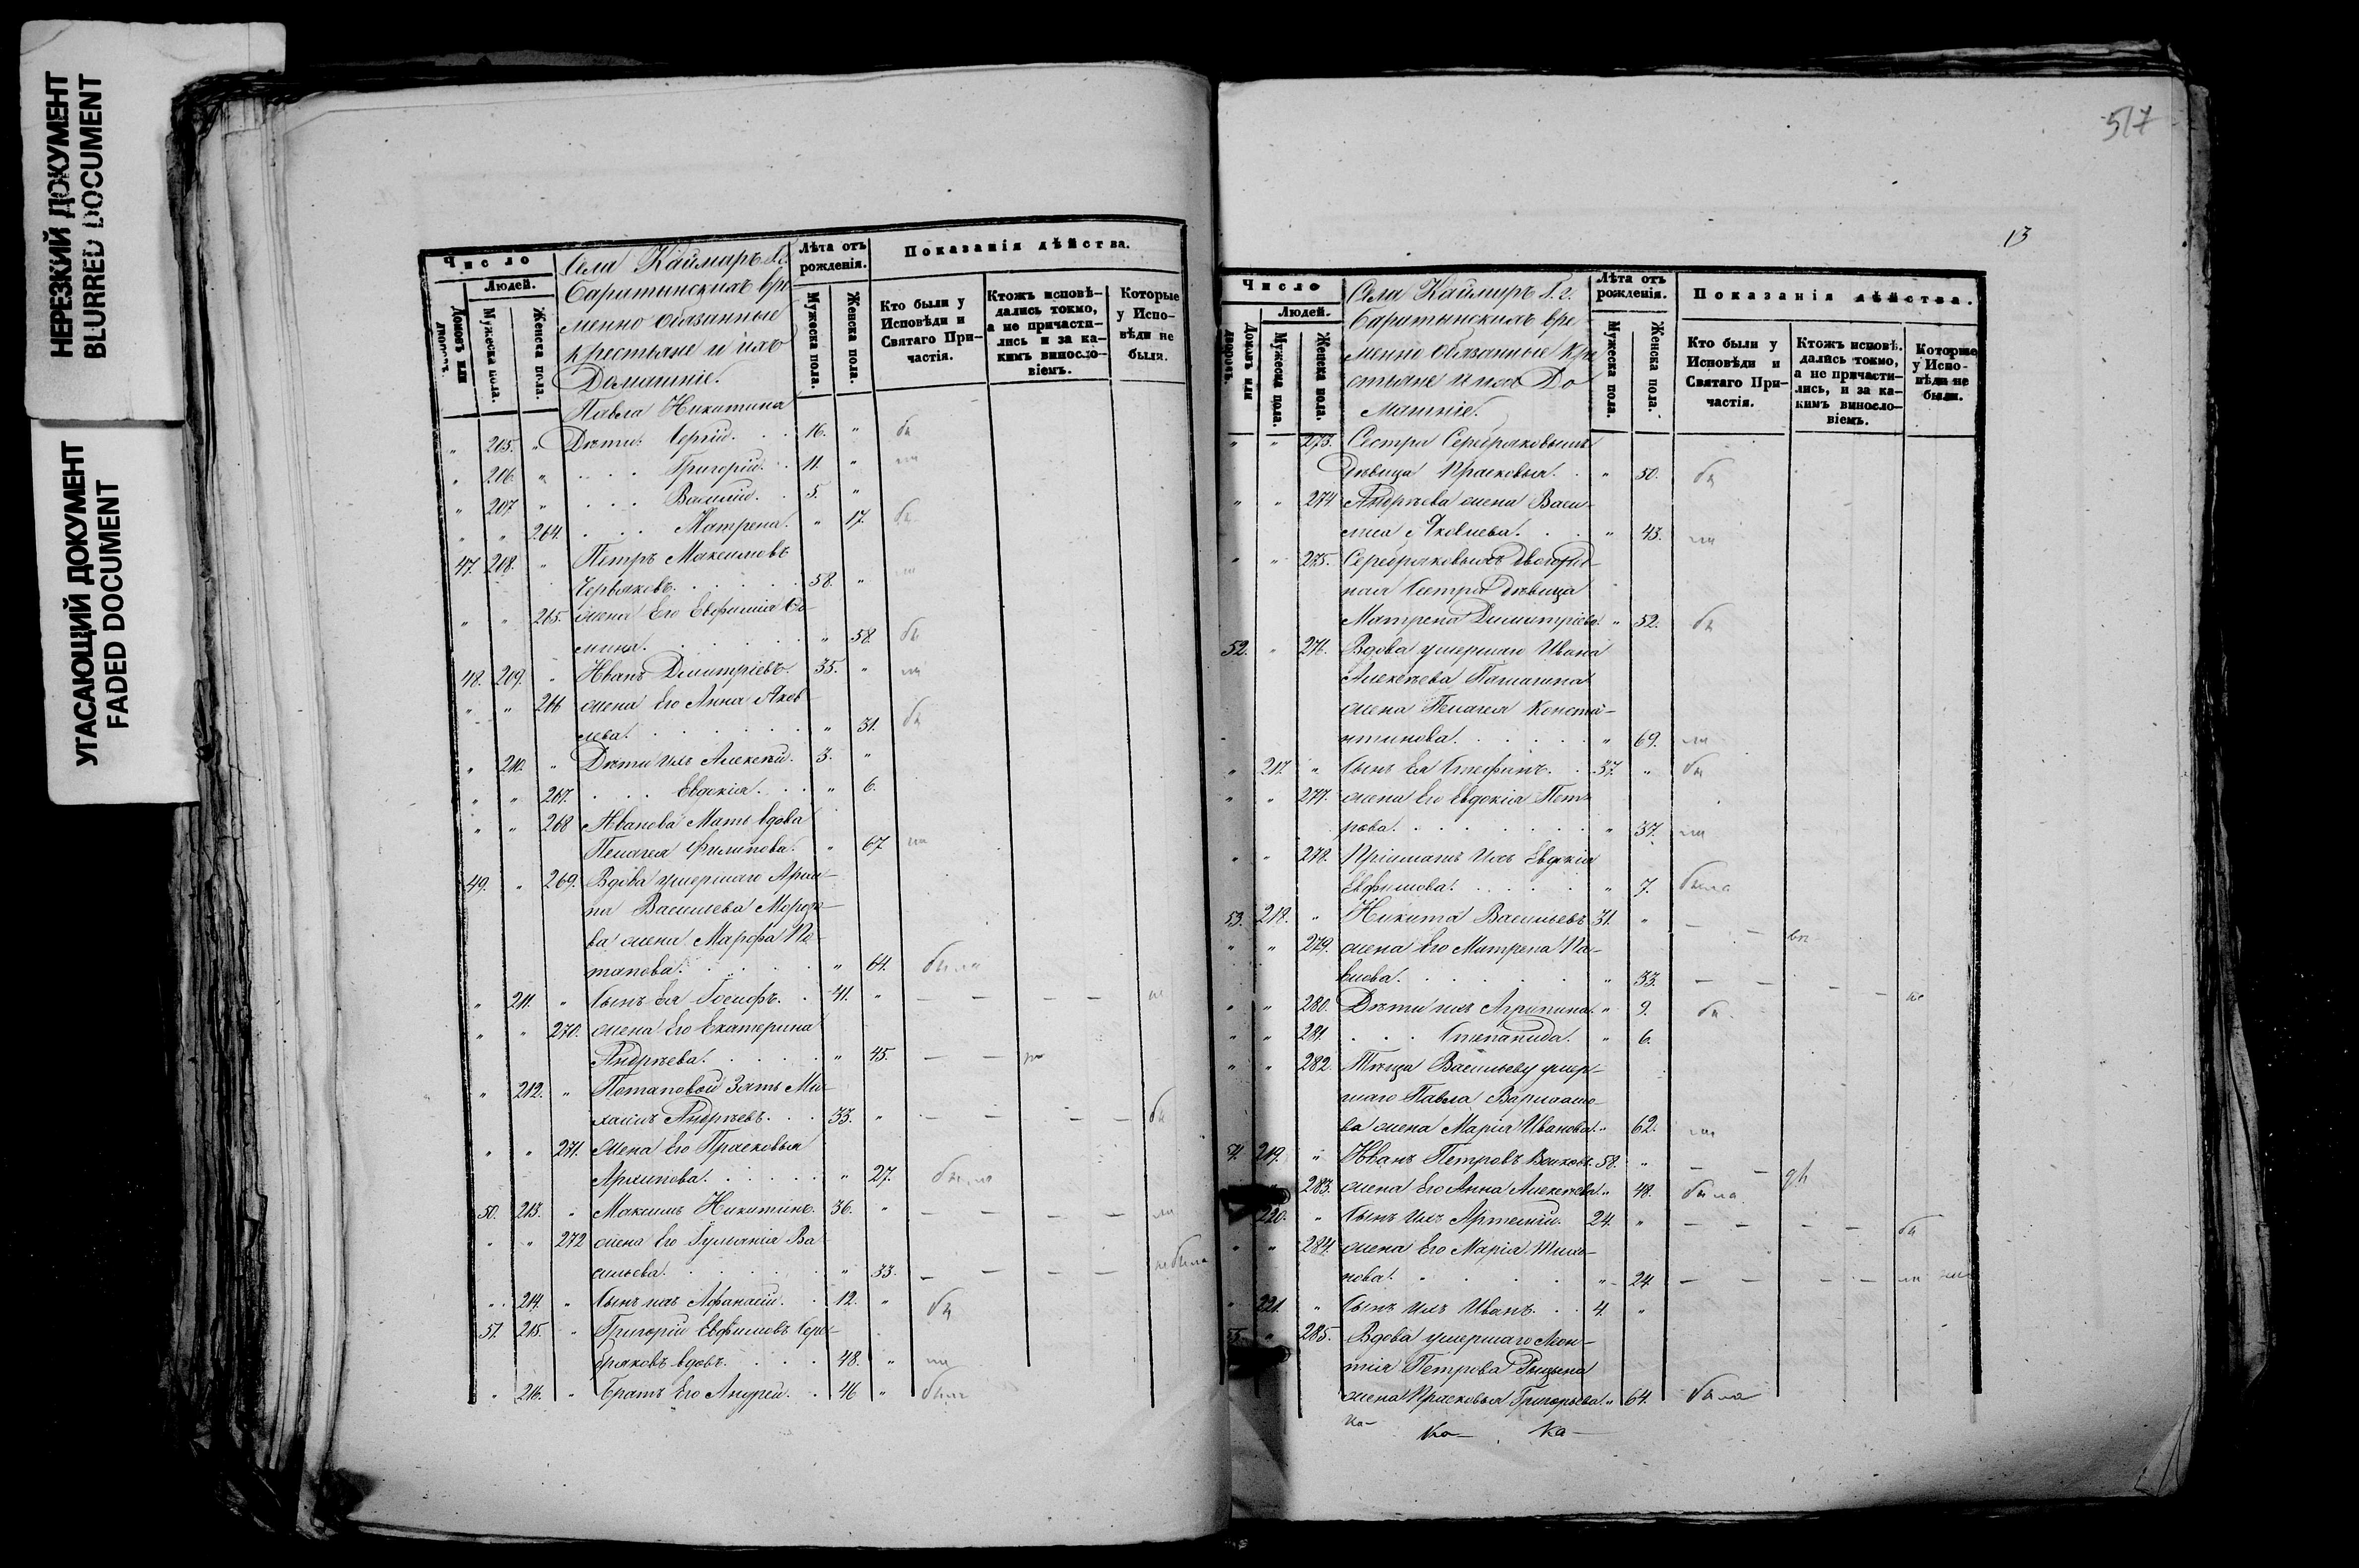 НЕРЕЗКИЙ ДОКУМЕНТ
BLURRED DOCUMENT
УГАСАЮЩИЙ ДОКУМЕНТ
FADED DOCUMENT
Число
Людей.
Домовъ или дворовъ.
Мужеска пола.
Женска пола.
Села Каймаръ Г.г.
Баратынскихъ вре-
менно обязанные
крестьяне и ихъ
Домашніе.
Лѣта отъ рожденія.
Мужеска пола.
Женска пола.
Показанія дѣйства.
Кто были у Исповѣди и Святаго Причастія.
Ктожъ исповѣ-
дались токмо,
а не причасти-
лись и за ка-
кимъ винословіемъ.
Которые у Исповѣди не были.
Павла Никитина
" 205. " Дѣти: Сергій. 16. "
" 206. " Григорій. 11. "
" 207 " Василій. 5. "
" " 264. Матрена. " 17.
47. 208. " Петръ Максимовъ
Червяковъ. 58. "
" " 265. жена Его Евфимія Ѳо-
мина. " 58.
48. 209. " Иванъ Димитріевъ. 35. "
" " 266 жена Его Анна Яков-
лева. " 31.
" 210. " Дѣти ихъ Алексѣй. 3. "
" " 267. Евдокія. " 6.
" " 268 Иванова Мать вдова
Пелагея Филипова. " 67.
49. " 269. Вдова умершаго Архи-
па Васильева Морозо-
ва жена Марфа По-
тапова. " 64. была
" 211. " Сынъ Ея Іосифъ. 41. "
" " 270. жена Его Екатерина
Андреева. " 45.
" 212. " Потаповой Зять Ми-
хаилъ Андреевъ. 33. "
" " 271. Жена Его Прасковья
Архипова. " 27. была
50. 213. " Максимъ Никитинъ. 36. "
" " 272 жена Его Іуліанія Ва-
сильева. " 33. не была
" 214. " Сынъ ихъ Афанасій. 12. "
51. 215. " Григорій Евфимовъ Сере-
бряковъ вдовъ. 48. "
" 216. " Братъ Его Андрей. 46 "
517
13
Число
Людей.
Домовъ или дворовъ.
Мужеска пола.
Женска пола.
Села Каймаръ Г.г.
Баратынскихъ вре-
менно обязанные Кре
стьяне и ихъ До
машніе.
Лѣта отъ рожденія.
Мужеска пола.
Женска пола.
Показанія дѣйства.
Кто были у Исповѣди и Святаго Причастія.
Ктожъ исповѣ-
дались токмо,
а не причасти-
лись, и за ка-
кимъ винословіемъ.
Которые у Исповѣди не были.
" " 273. Сестра Серебряковыхъ
дѣвица Прасковья. " 50.
" " 274 Андреева жена Васи-
лиса Яковлева. " 43.
" " 275. Серебряковыхъ двоюрод-
ная Сестра дѣвица
Матрена Димитріева. " 52.
52. " 276. Вдова умершаго Ивана
Алексѣева
жена Пелагея Конста-
нтинова. " 69.
" 217. " Сынъ Ея Стефанъ. 37. "
" " 277. жена Его Евдокія Пет-
рова. " 37.
" " 278. Пріимашъ Ихъ Евдокія
Евфимова. " 7. была
53. 218. " Никита Васильевъ 31. "
" " 279. жена Его Матрена Па-
влова. " 33.
" " 280. Дѣти ихъ Агрипина. " 9.
" " 281. Степанида. " 6.
" " 282. Теща Васильеву умер-
шаго Павла Варлаамо-
ва жена Марія Иванова. " 62.
54. 219. " Иванъ Петровъ Волковъ. 58. "
283. жена Его Анна Алексѣева. " 48. была
220. " Сынъ Ихъ Артемій. 24. "
" " 284. жена Его Марія Тихо-
нова. " 24
" 221. " Сынъ Ихъ Иванъ. 4. "
55. " 285. Вдова умершаго Леон-
тія Петрова
жена Прасковья Григорьева. " 64. была
ка- ка- ка-